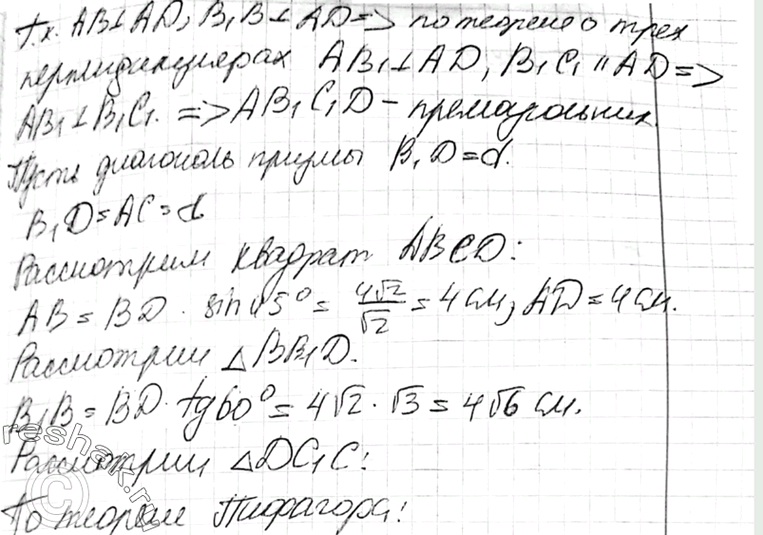 т.к. AB⊥AD, B₁B⊥AD => по теореме о трех
перпендикулярах AB₁⊥AD, B₁C₁ ∥ AD =>
AB₁⊥B₁C₁. => AB₁C₁D - прямоугольник.
Пусть диагональ призмы B₁D=d.
B₁D=AC=d
Рассмотрим квадрат ABCD:
AB = BD · sin45° = 4√2/√2 = 4 см, AD = 4 см.
Рассмотрим △BB₁D.
B₁B = BD · tg60° = 4√2 · √3 = 4√6 см.
Рассмотрим △DC₁C:
По теореме Пифагора:
reshak.ru